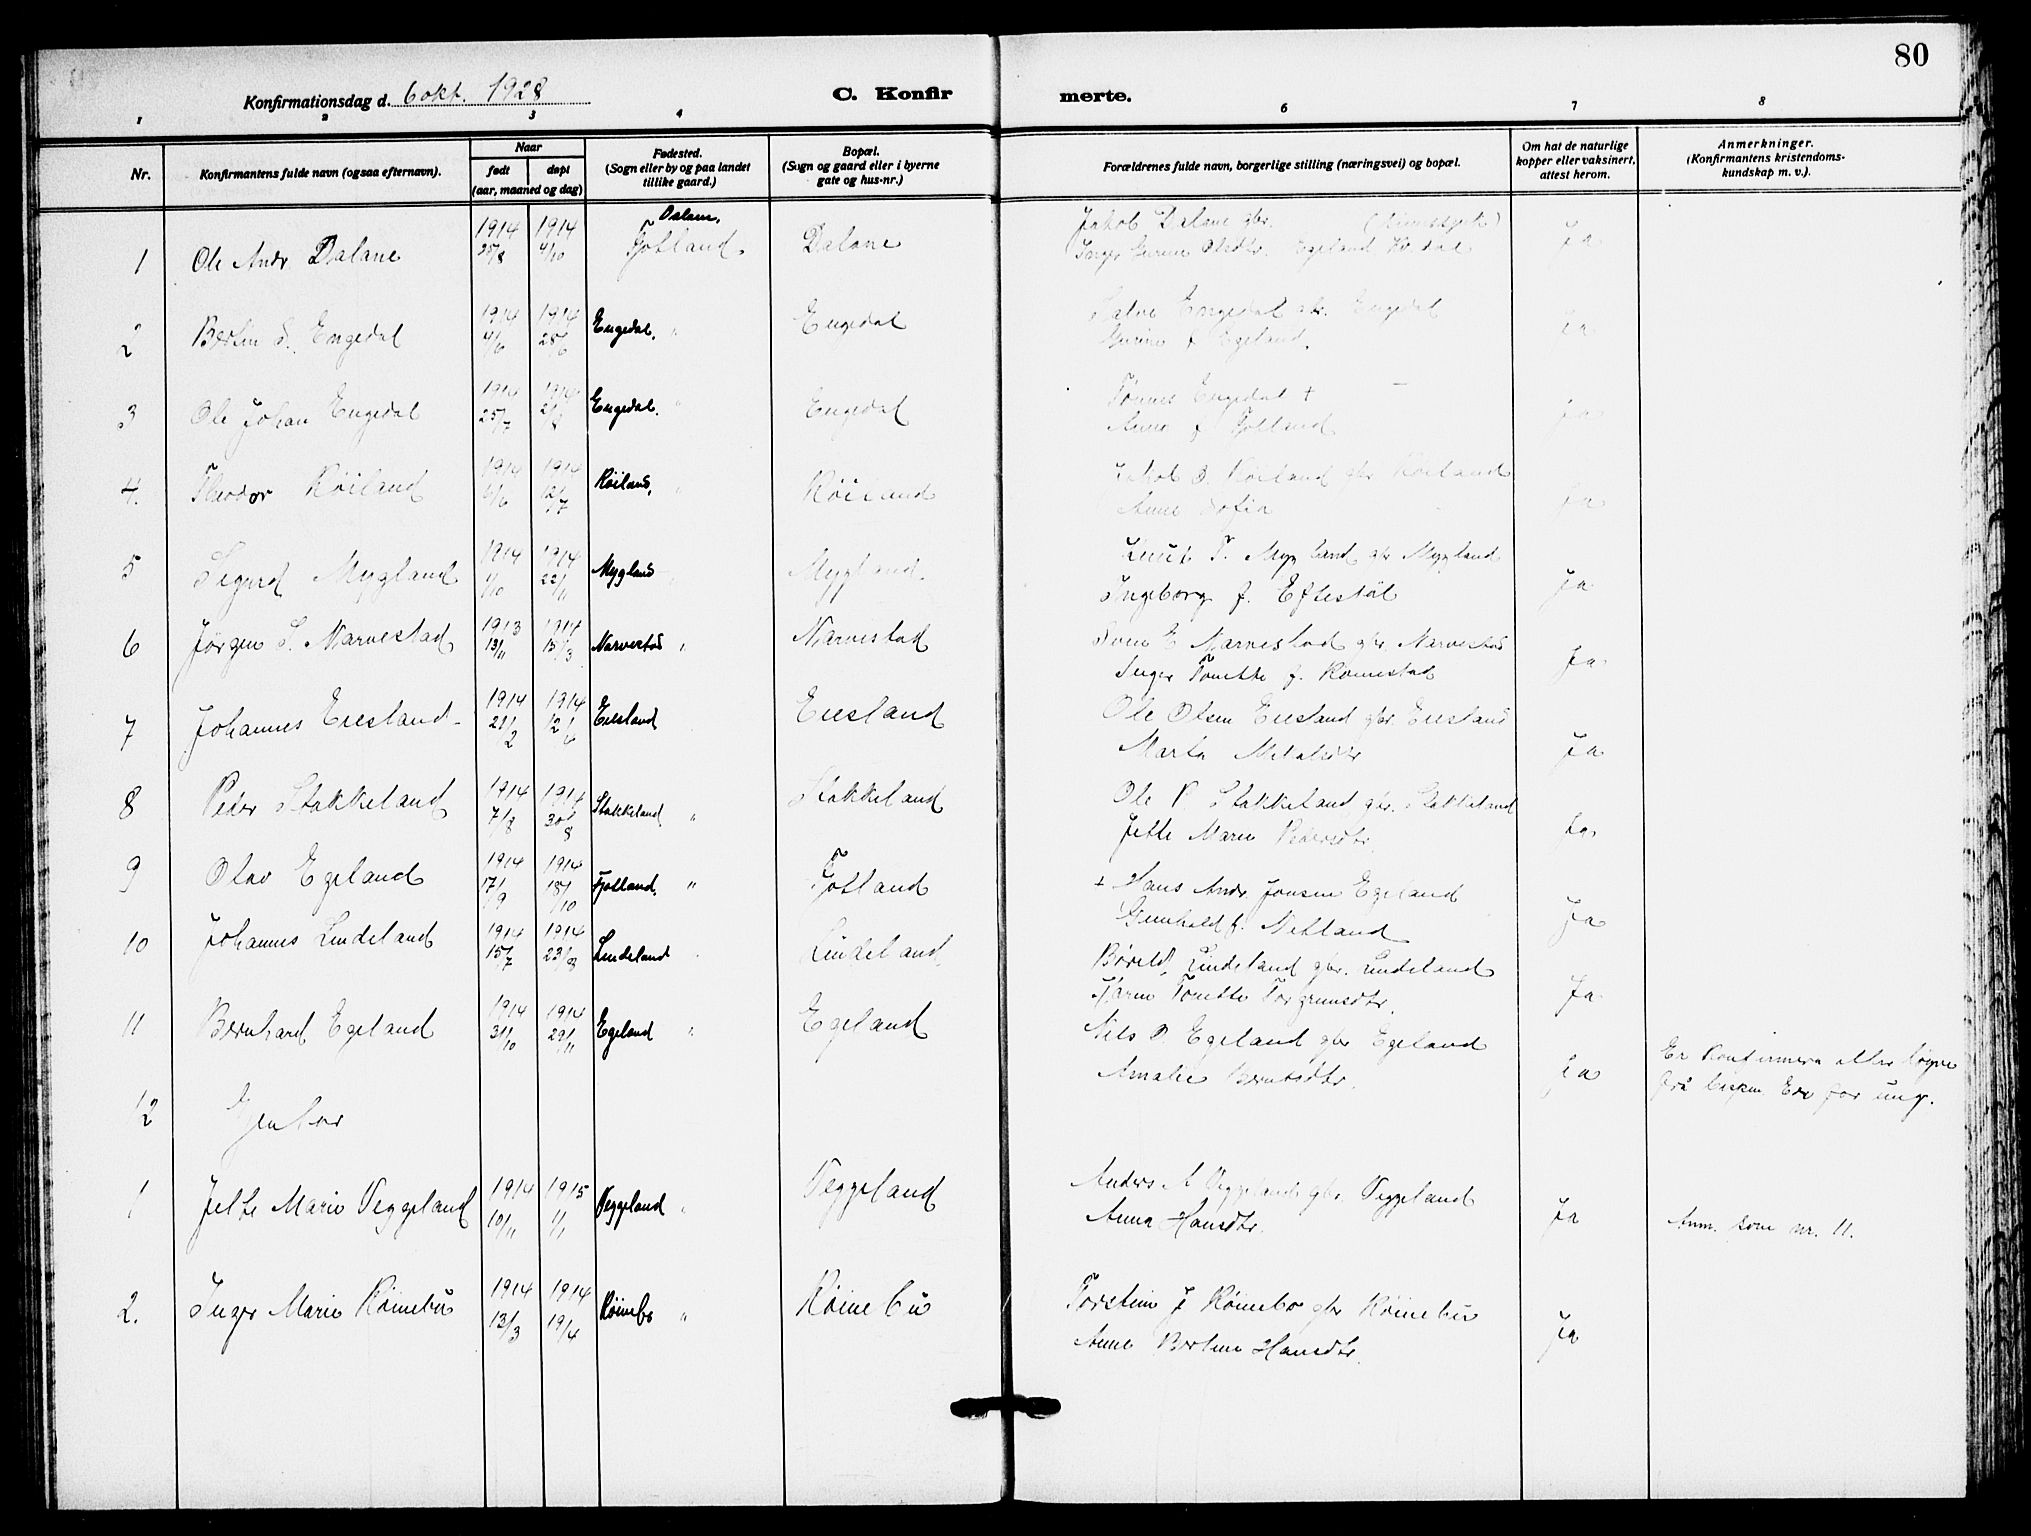 80
Konfirmationsdag d. 6 okt. 1928
C. Konfirmerte.
1 2 3 4 6 7 8
Nr.
Konfirmantens fulde navn (ogsaa efternavn).
Naar
født døpt
(aar, maaned og dag)
Fødested.
(Sogn eller by og paa landet
tillike gaard.)
Bopæl.
(Sogn og gaard eller i byerne
gate og hus-nr.)
Forældrenes fulde navn, borgerlige stilling (næringsvei) og bopæl.
Om hat de naturlige
kopper eller vaksinert,
attest herom.
Anmerkninger.
(Konfirmantens kristendoms-
kundskap m. v.).
1 Ole Andr Dalane 1914 25/8 1914 4/10 Dalane, Fjotland Dalane Jakob Dalane gbr. Ja
Inger Olsdtr. Egeland
2 Bertin S. Engedal 1914 4/6 1914 28/6 Engedal. " Engedal Salve Engedal gbr. Engedal Ja
Gurine f Egeland.
3 Ole Johan Engedal 1914 25/7 1914 Engedal. " Engedal Tønnes Engedal + Ja
Anne f Fjotland
4. Theodor Røiland 1914 1914 12/7 Røiland, " Røiland Jakob O. Røiland gbr Røiland Ja
Anne Sofia
5 Sigurd Mygland 1914 1/10 1914 22/11 Mygland " Mygland. Knut T. Mygland gbr Mygland Ja
Ingeborg f. Eftestøl
6 Jørgen S. Narvestad 1913 13/11 1914 15/3 Narvestad " Narvestad Sven E Narvestad gbr. Narvestad Ja
Inger Tonette f. Romestad
7 Johannes Eiesland 1914 21/2 1914 Eiesland Eiesland Ole Olsen Eiesland gbr. Eiesland Ja
Marta
8 Peder Stakkeland 1914 7/8 1914 30/8 Stakkeland " Stakkeland Ole P Stakkeland gbr. Stakkeland Ja
Jette Marie Pedersdtr.
9 Olav Egeland 1914 17/9 1914 18/10 Fjotland. " Fjotland + Hans Andr. Jonsen Egeland Ja
Gunhild f. Netland
10 Johannes Lindeland 1914 15/7 1914 23/8 Lindeland Lindeland Lindeland gbr. Lindeland Ja
Tonette Torgrimsdtr.
11 Bernhard Egeland 1914 31/10 1914 29/11 Egeland " Egeland Nils O. Egeland gbr Egeland Ja Er konfirmera etter løyve
Amalie Berntsdtr. frå bispen. Er for ung.
12 Gjentor
1 Jette Marie Veggeland 1914 10/11 1915 1/1 Veggeland " Veggeland Anders A Veggeland gbr. Veggeland Ja Anm. som nr. 11.
Anna Hansdtr.
2. Inger Marie Røinebu 1914 13/3 1914 19/4 Røinebo " Røinebu Torstein J Røinebo gbr Røinebu Ja
Anne Bertine Hansdtr.